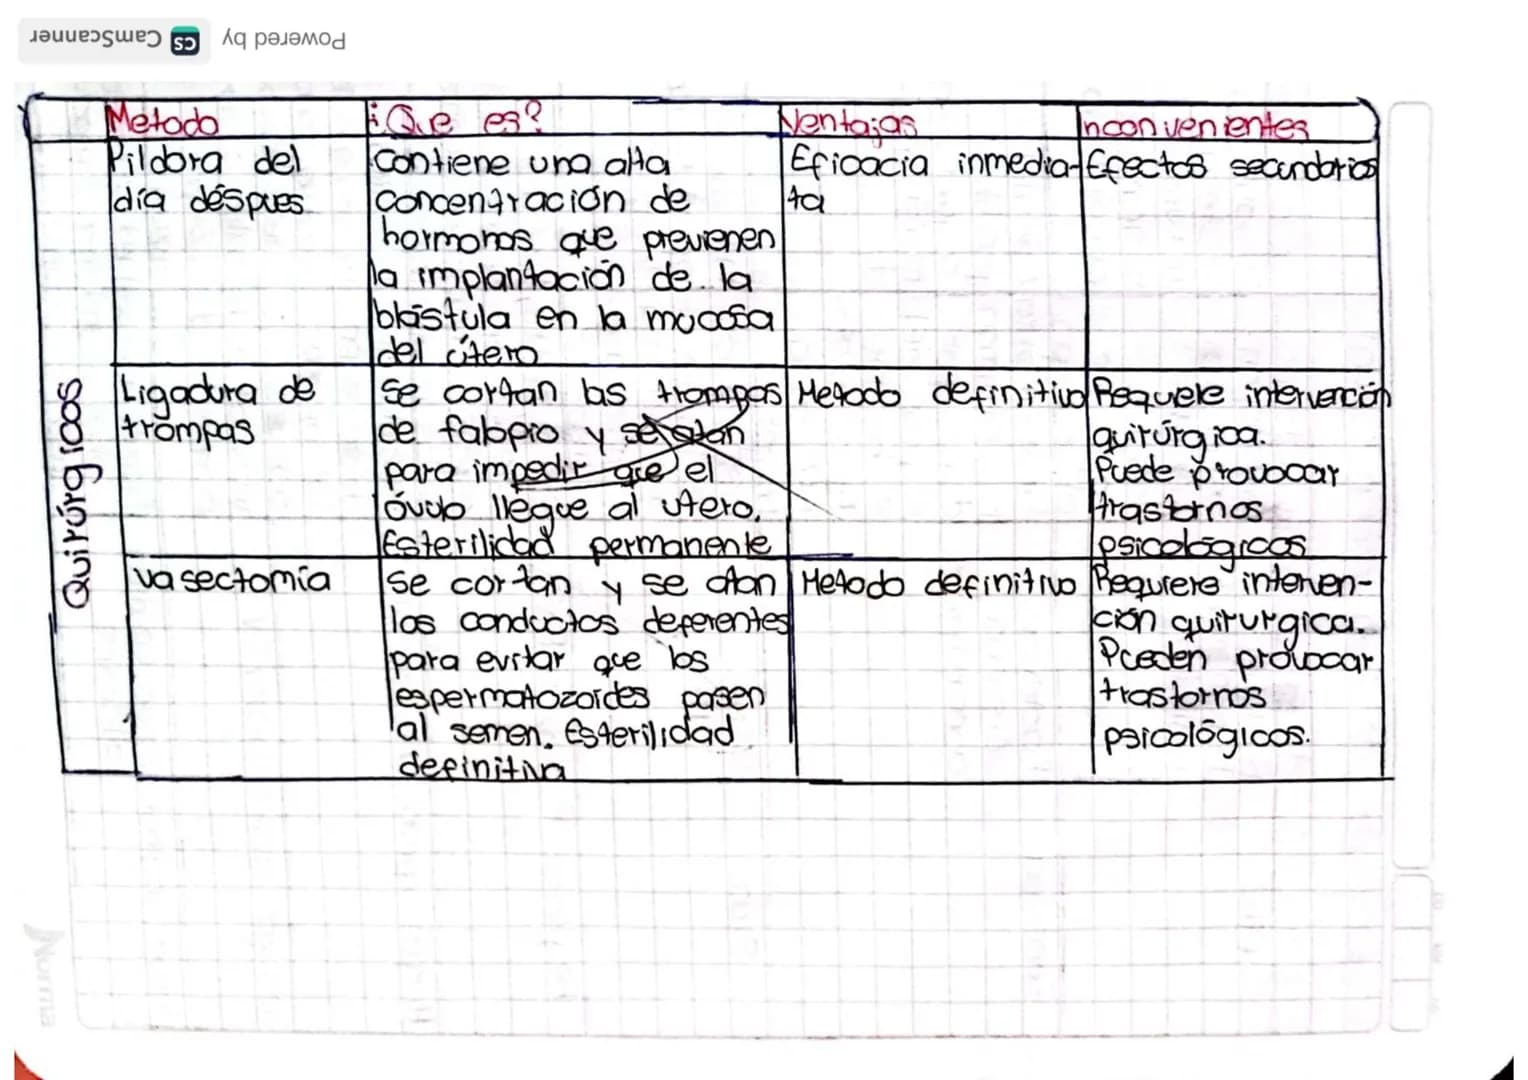 Powered by CS CamScanner
Metodo
¿Que es?
Ventajas
Inconvenientes
Pildora del
día déspues
contiene una alta
concentración de
hormonas que previenen
la implantación de la
blástula en la mucosa
del útero
Eficacia inmedia-
ta
Efectos secundarios
Quirúrgicos
Ligadura de
trompas
se cortan las trompas
de falopio y se atan
para impedir que el
óvulo llegue al utero.
Esterilidad permanente
Metodo definitivo
Requiere intervención
quirúrgica.
Puede provocar
trastornos
psicologicos
vasectomía
se cortan y se atan
los conductos deferentes
para evitar que los
espermatozoides pasen
al semen. Esterilidad
definitiva
Metodo definitivo
Requiere interven-
ción quirurgica.
Pueden provocar
trastornos
psicológicos.
Norma